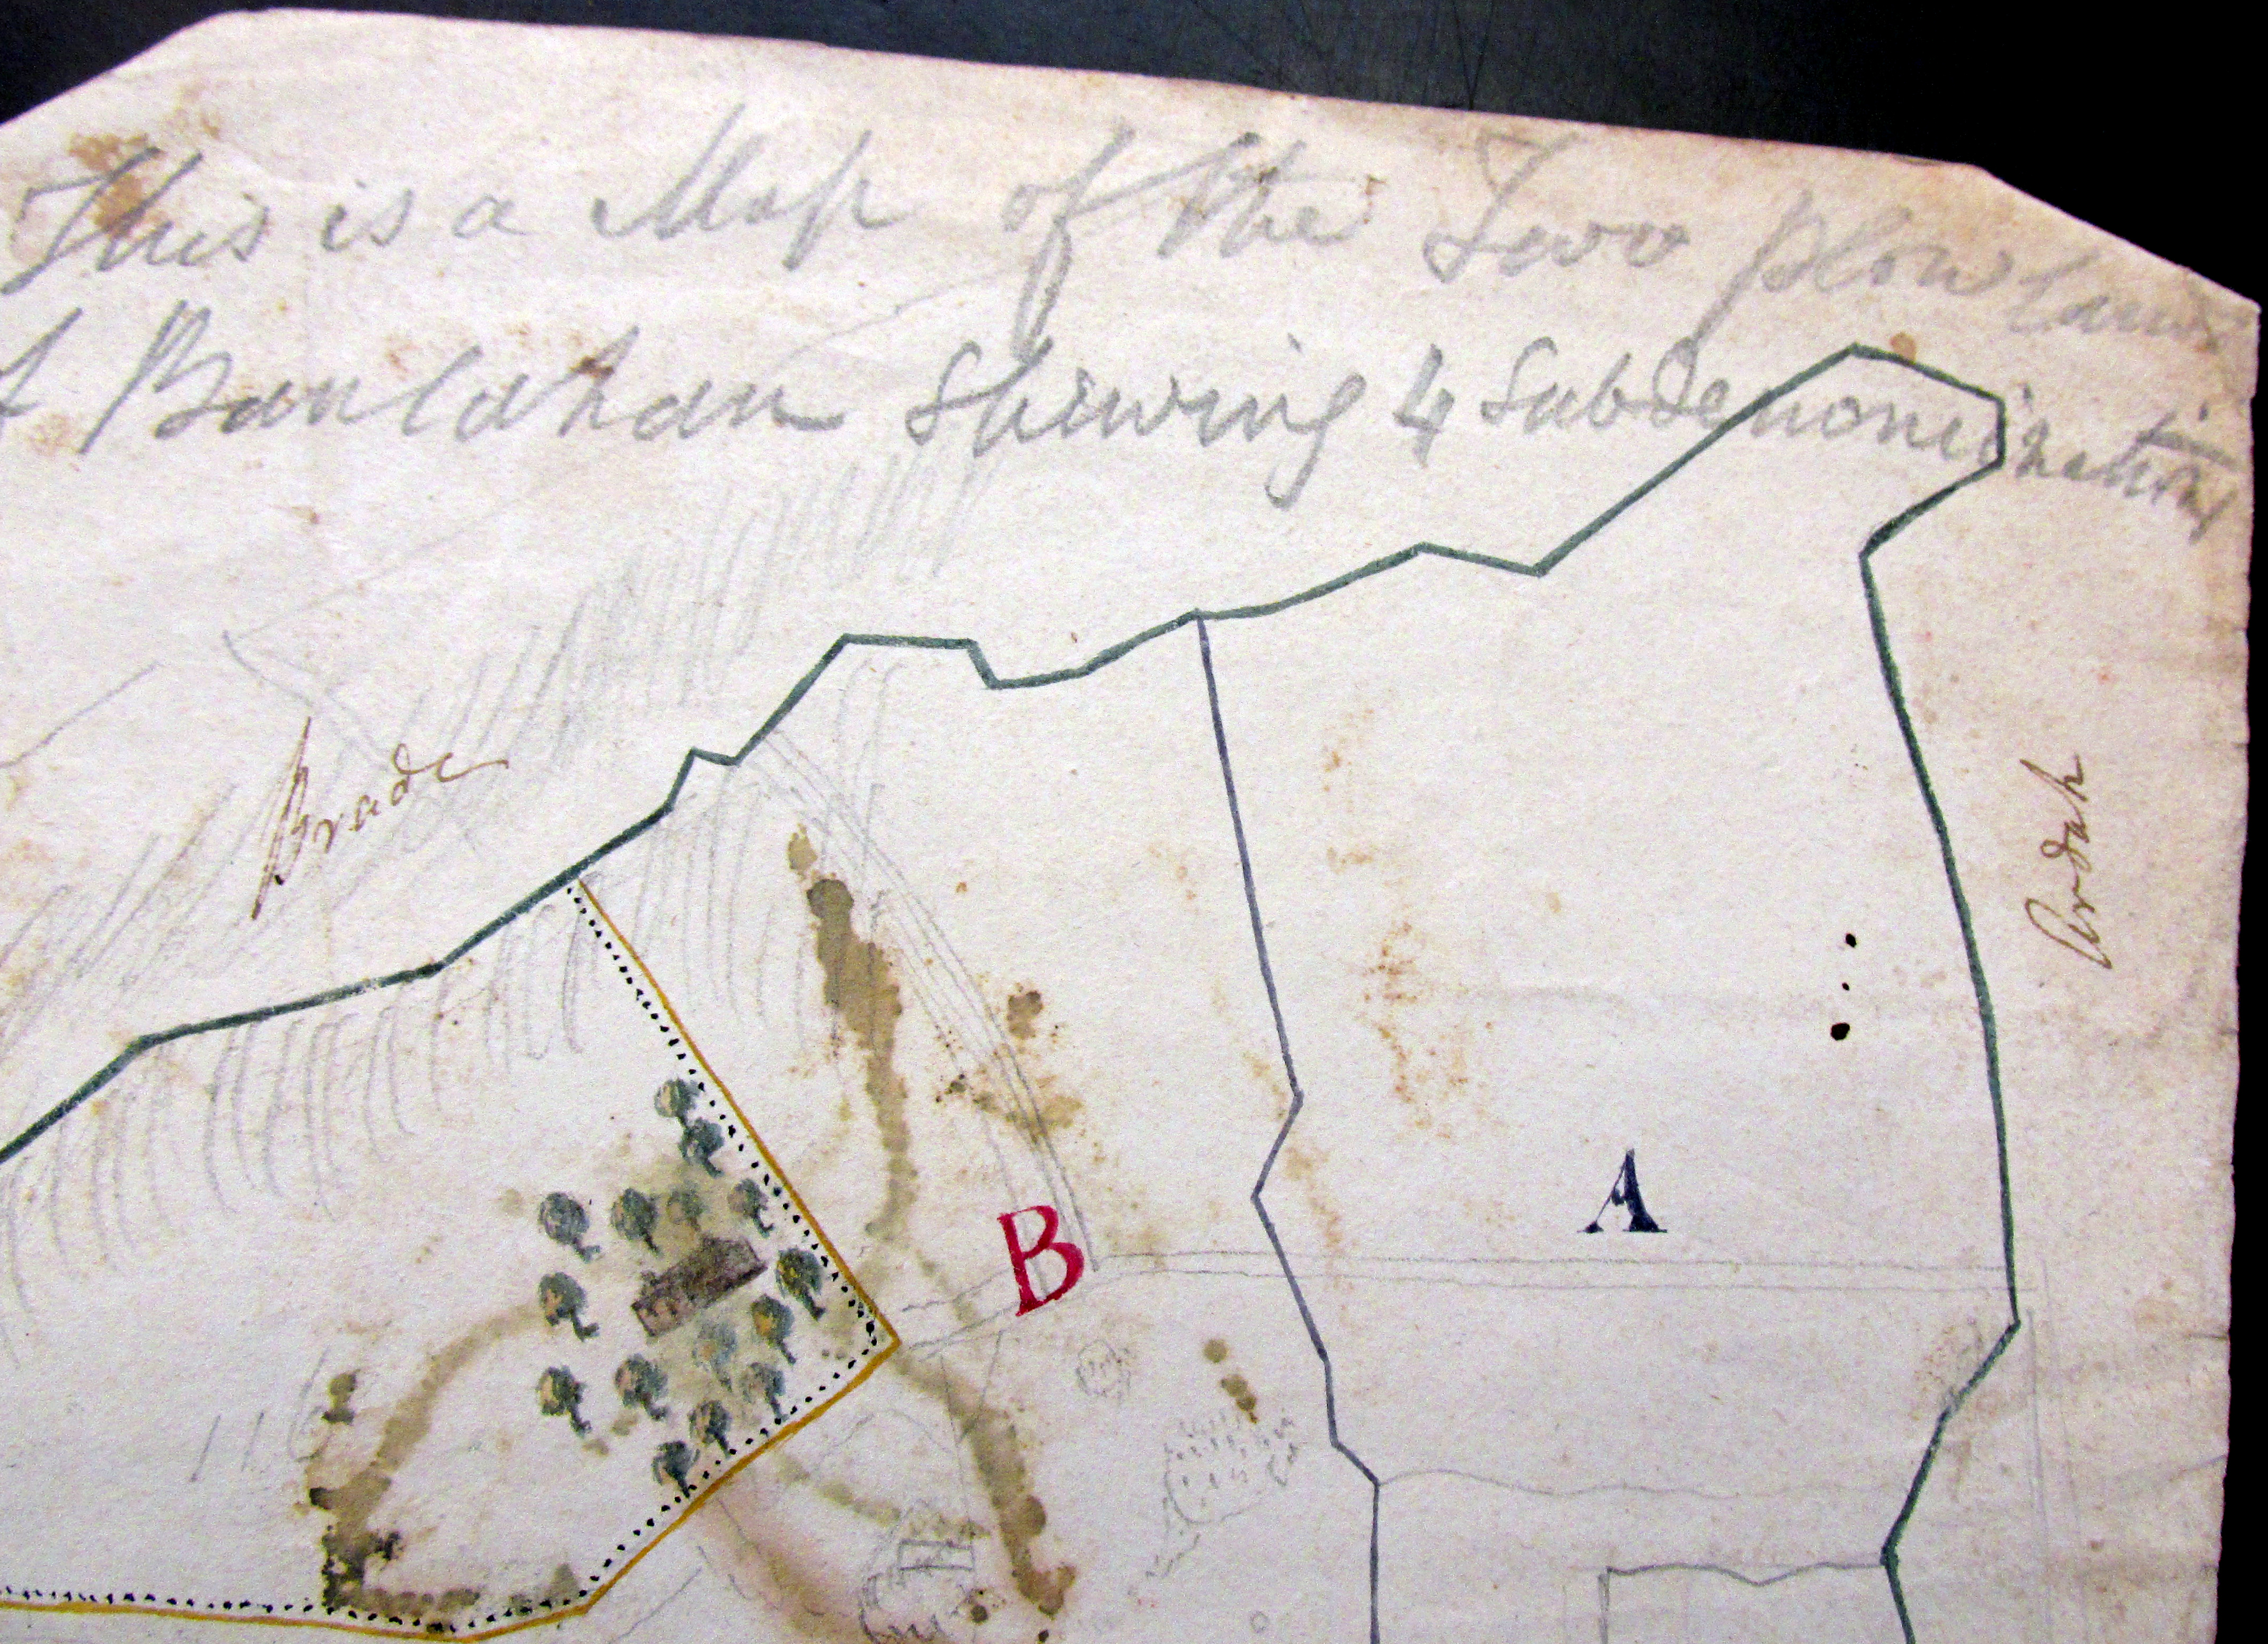 This is a Map of the Two plow lands
of Banlahan shewing 4 Subdenominations
Brade
Ardah
A
B
116